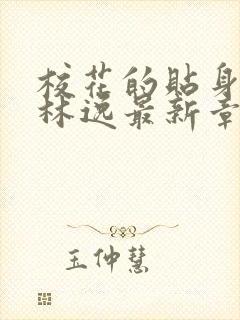 校花的贴身
林逸最新章
王仲慧